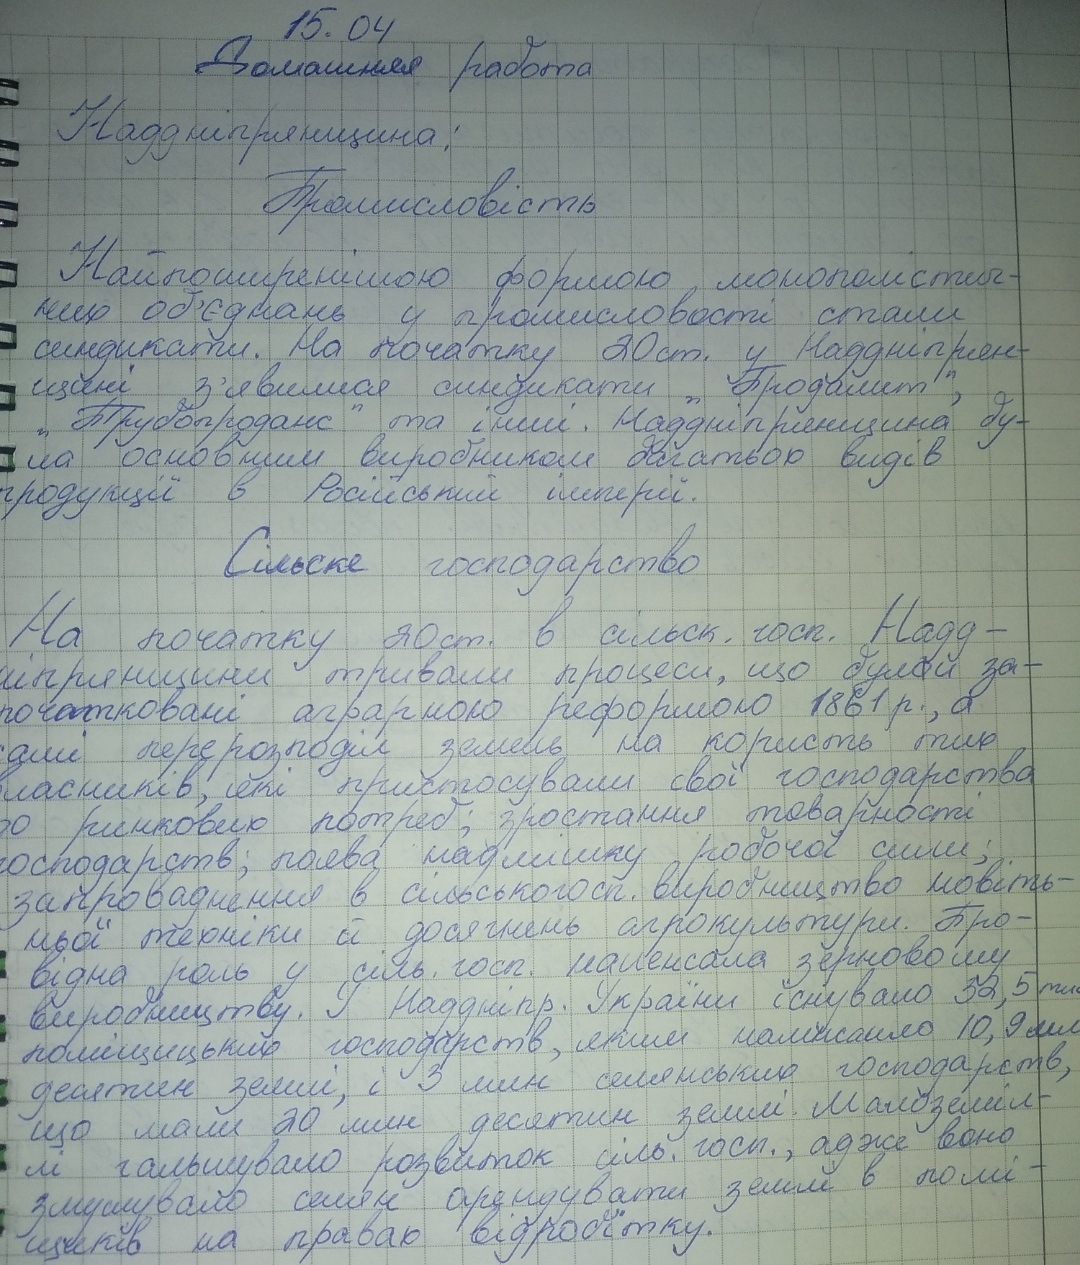 15.04
Домашняя работа
Наддніпрянщина:
Промисловість
Найпоширенішою формою монополістич-
них об'єднань у промисловості стали
синдикати. На початку 20ст. у Наддніпрян-
щині з'явилися синдикати „Продамит",
„Трубопродаж" та інші. Наддніпрянщина бу-
ла основним виробником багатьох видів
продукції в Російський імперії.
Сільске господарство
На початку 20ст. в сільск. госп. Надд-
ніпрянщини тривали процеси, що були за-
початковані аграрною реформою 1861р., а
саме перерозподіл земель на користь тих
власників, які пристосували свої господарства
до ринкових потреб; зростання товарності
господарств; поява надлишку робочої сили;
запровадження в сільськогосп. виробництво новіть-
ньої техніки й досягнень агрокультури. Про-
відна роль у сіль. госп. належала зерновому
виробництву. У Наддніпр. Україні існувало 32,5 тис
поміщицьких господарств, яким належало 10,9 млн
десятин землі, і 3 млн селянських господарств,
що мали 20 млн десятин землі. Малоземіл-
лі гальмувало розвиток сіль. госп., адже воно
змушувало селян орендувати землі в помі-
щиків на правах відробітку.